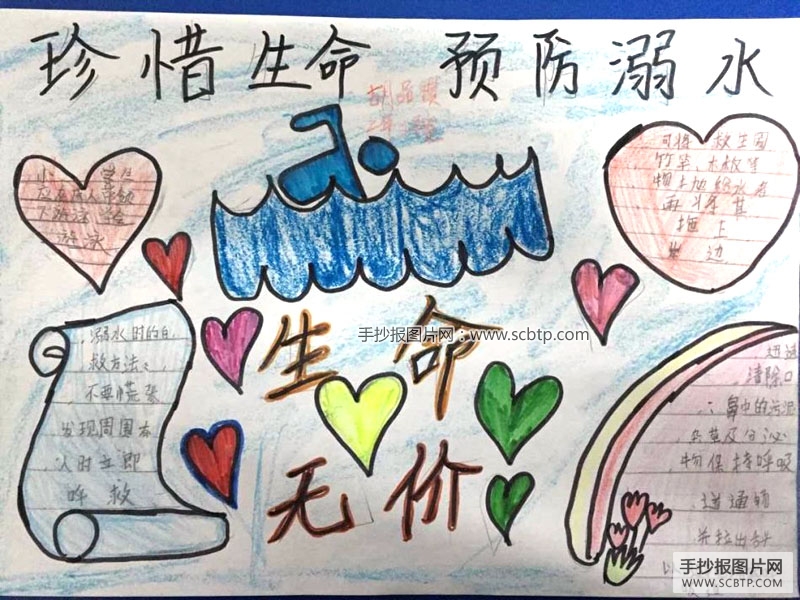 珍惜生命 预防溺水
二年
小 学生
应在成人带领
下游泳 学会
游泳
可将 救生圈
竹竿、木板等
物
拖上
岸边
溺水时的自
救方法：
不要慌张
发现周围有
人时立即
呼救
手抄报图片网：www.scbtp.com
生命
无价
迅速
清除口
、鼻中的污泥
杂草及分泌
物保持呼吸
道通畅
并拉出舌
手抄报图片网
WWW.SCBTP.COM